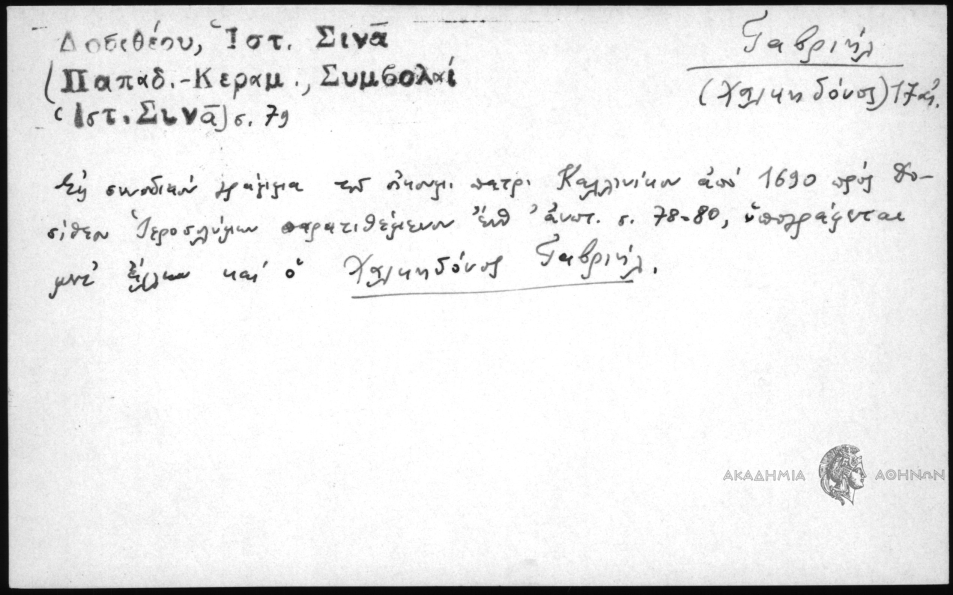 Δοσιθέου, Ἱστ. Σινᾶ
(Παπαδ.-Κεραμ., Συμβολαί
Ἱστ. Σινᾶ) σ. 79
Γαβριήλ
(Χαλκηδόνος) 17 αἰ.
Εἰς συνοδικὸν γράμμα τοῦ οἰκουμ. πατρ. Καλλινίκου ἀπὸ 1690 πρὸς Δο-
σίθεον Ἱεροσολύμων παρατιθέμενον ἐνθ' ἀνωτ. σ. 78-80, ὑπογράφεται
μετ' ἄλλων καὶ ὁ Χαλκηδόνος Γαβριήλ.
ΑΚΑΔΗΜΙΑ ΑΘΗΝΩΝ